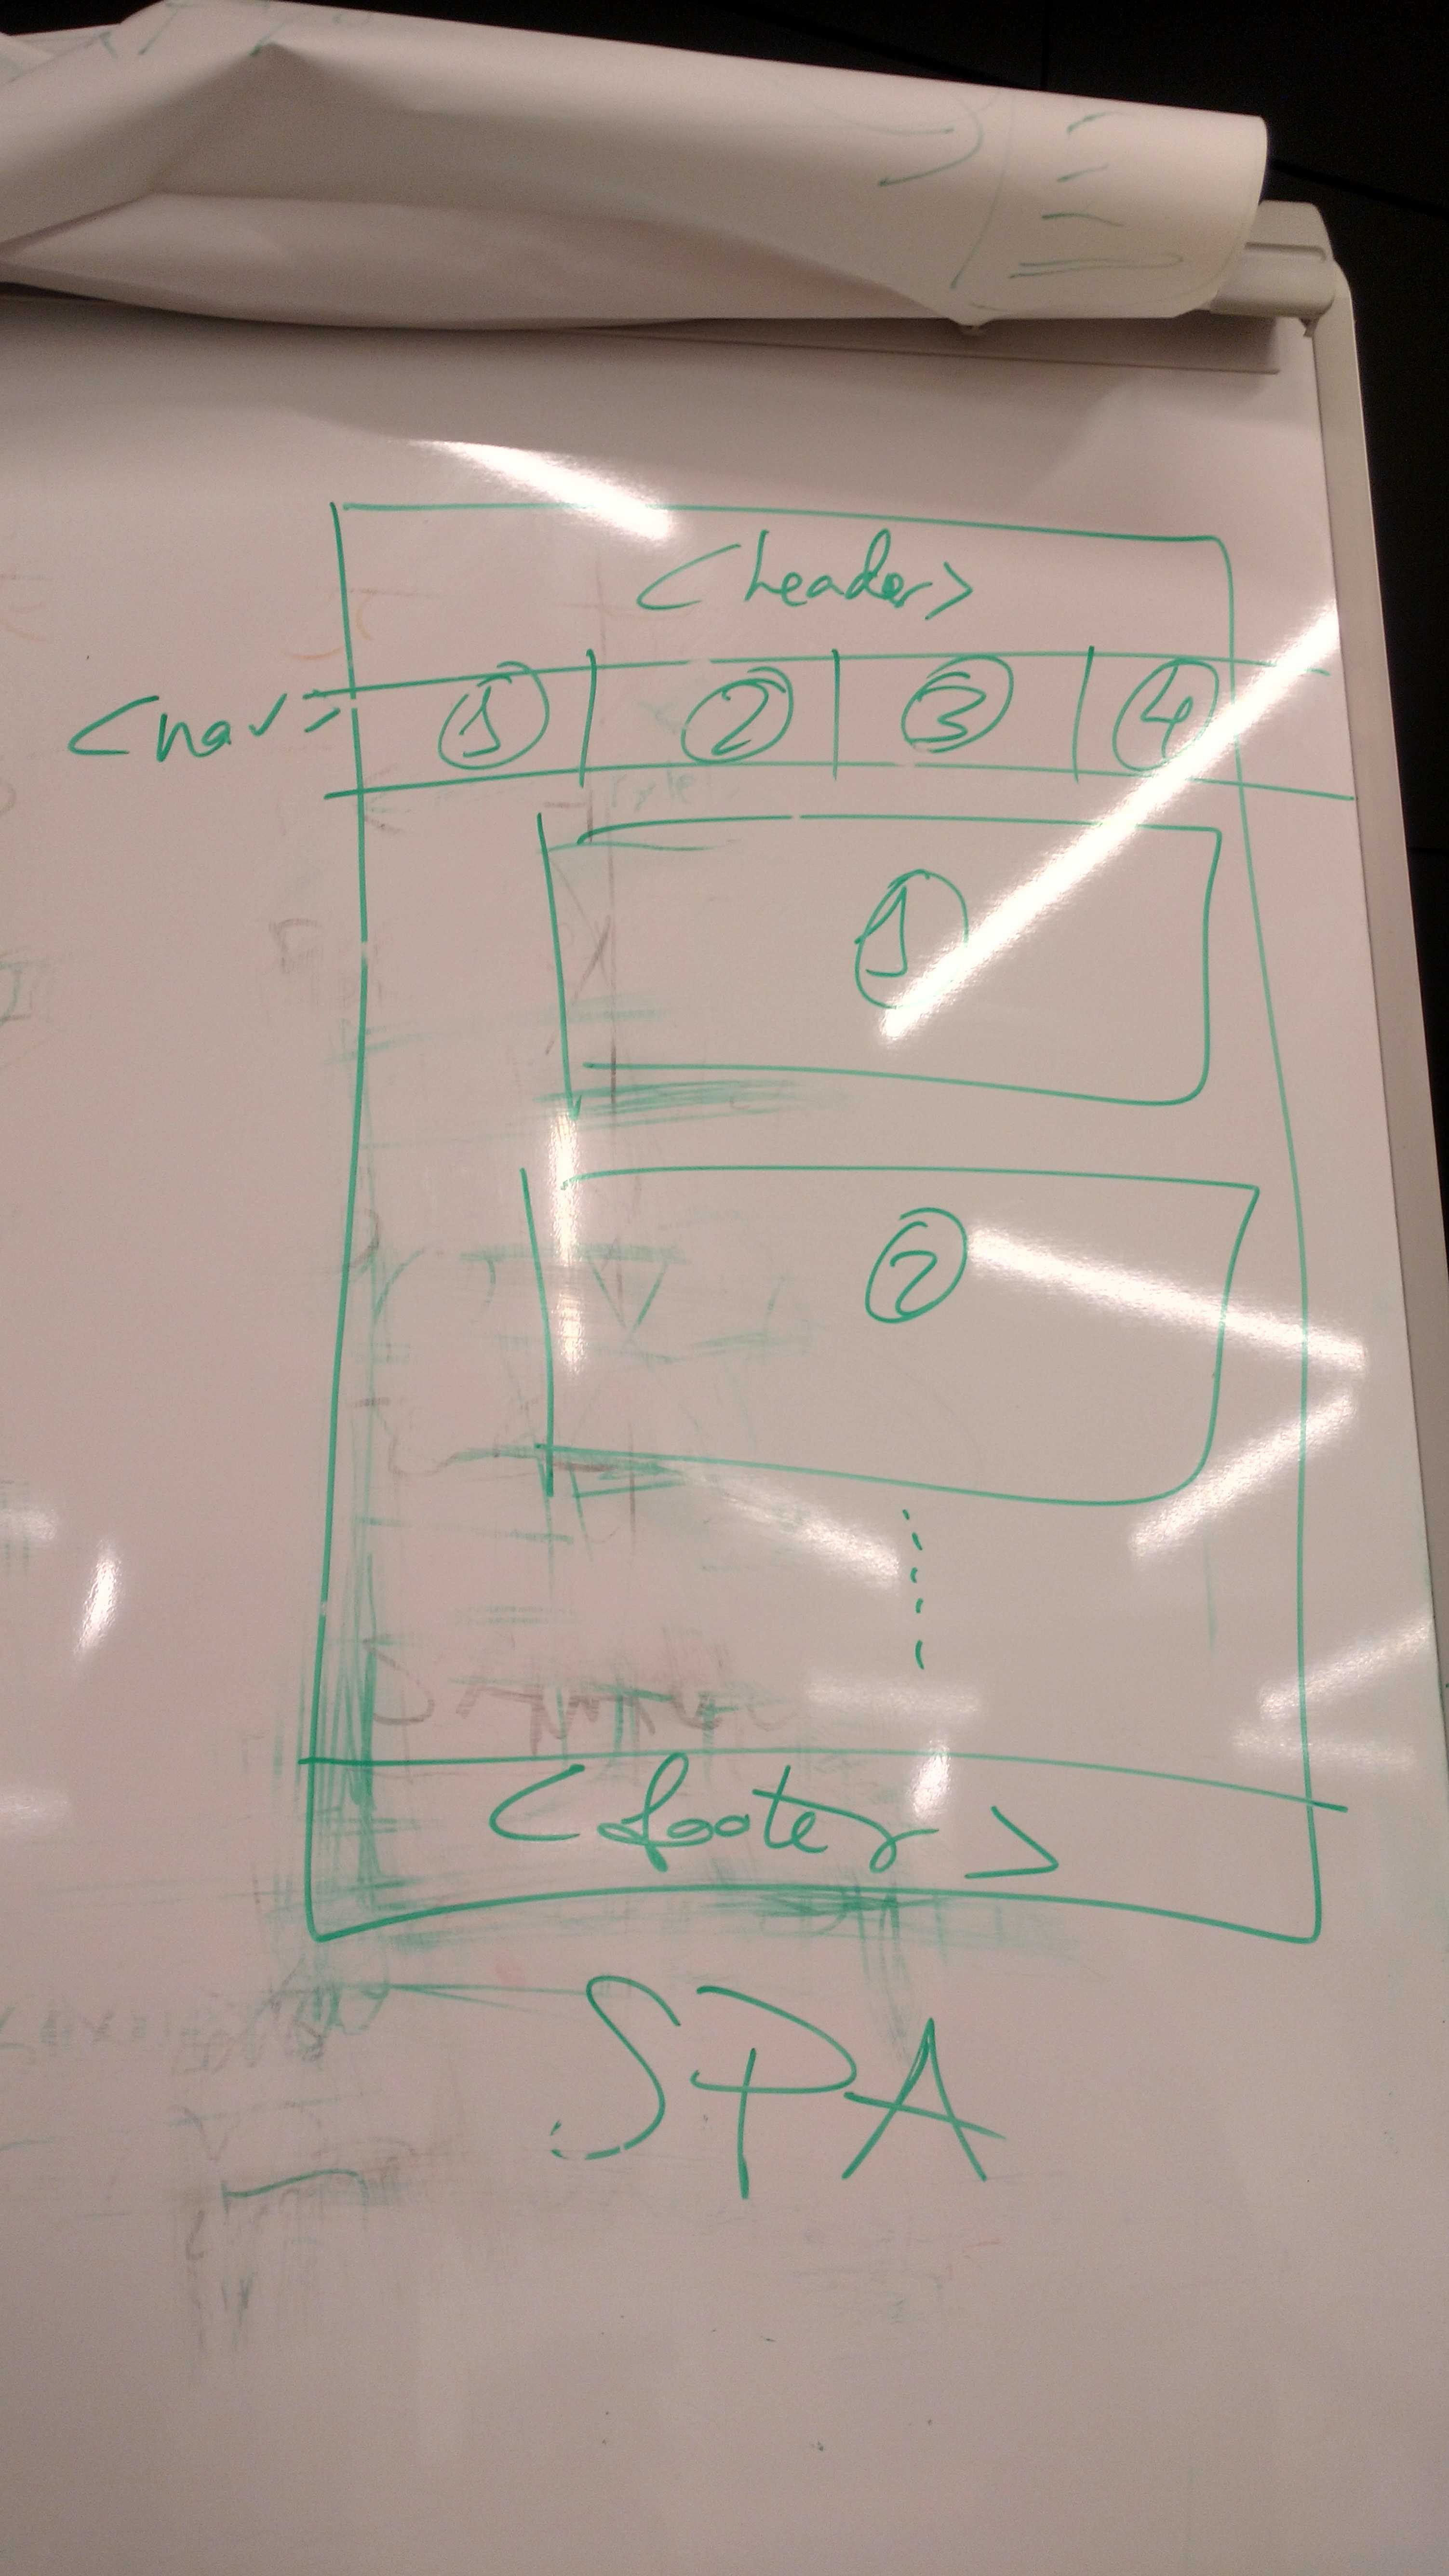 <header>
<nav> ① ② ③ ④
①
②
<footer>
SPA